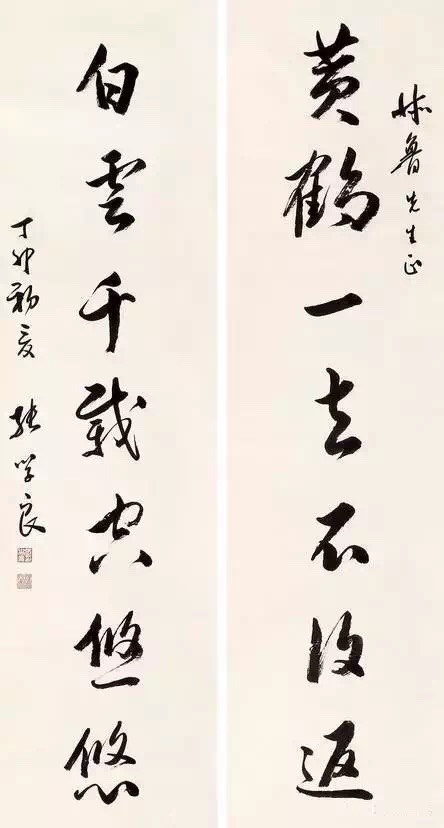 魯先生正
黃鶴一去不復返
白雲千載空悠悠
丁卯初夏 張學良